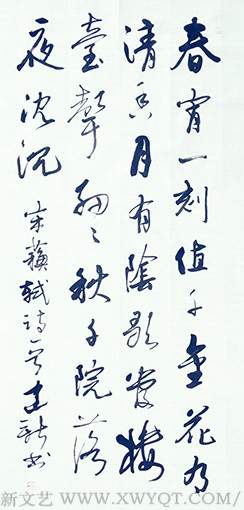 春宵一刻值千金花有
清香月有陰歌管樓
臺聲細々秋千院落
夜沈沉 宋蘇軾詩一首建新书
新文艺/WWW.XWYQT.COM/